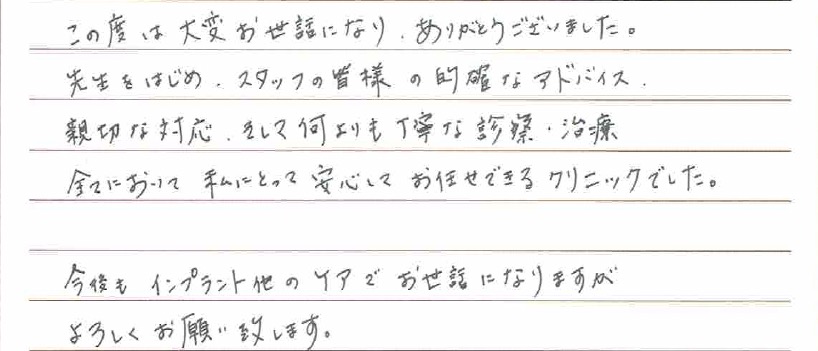 この度は大変お世話になり、ありがとうございました。
先生をはじめ、スタッフの皆様の的確なアドバイス、
親切な対応、そして何よりも丁寧な診察・治療
全てにおいて私にとって安心してお任せできるクリニックでした。
今後もインプラント他のケアでお世話になりますが
よろしくお願い致します。